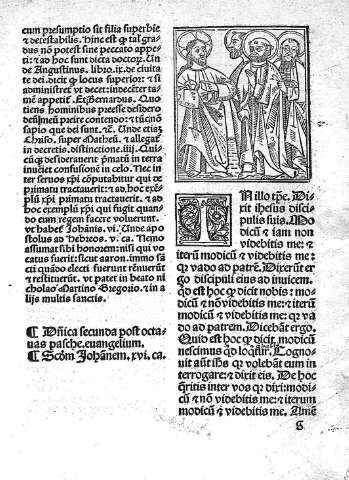 cum presumptio sit filia superbie
& detestabilis. Hinc est qᷓ tal gra-
dus nō potest sine peccato appe-
ti: & ad hoc sunt dicta doctoꝝ. Un
de Augustinus. libro .ix. de ciuita
te dei. dicit qᷓ locus superior: & si
administret̄ vt decet: indecēter ta-
mē appetit̄. Et Bernardus. Quo
tiens hominibus preesse desidero
preire contendo: & tūc nō
sapio que dei sunt. Unde etiā
Chriso. super Matheū. & allegat̄
in decretis. distinctione .iiij. Qui-
cūqꝫ desiderauerit pͥmatū in terra
inueiet confusionē in celo. Nec in
ter seruos xp̄i cōputabitur qui de
primatu tractauerit: & ad hoc exē-
plū xp̄i primatu tractauerit. & ad
hoc exemplū xp̄i qui fugit quan-
do eum regem facere voluerunt.
vt habet̄ Johānis. vi. Unde apo
stolus ad hebreos. v. ca. Nemo
assumat sibi honorem: nisi qui vo
catus fuerit: sicut aaron. immo sā
cti quādo electi fuerunt rēnuerūt
& restituerūt. vt patet in beato ni
cholao Martino Gregorio. & in a
lijs multis sanctis.
¶ Dn̄ica secunda post octa-
uas pasche. euangelium.
¶ Scd̄m Johānem. xvi. ca.
IN illo tp̄e. Di-
xit ihesus disci-
pulis suis. Mo
dicū & iam non
videbitis me: &
iterū modicū & videbitis me:
qꝫ vado ad patrē. Dixerūt er
go discipuli eius ad inuicem.
qd̄ est hoc qꝫ dicit nobis: mo-
dicū & nō videbitis me: & iterū
modicū & videbitis me: qꝫ va
do ad patrem. Dicebāt ergo.
Quid est hoc qꝫ dicit modicū
nescimus qd̄ loqͥtur. Cogno-
uit aūt ihs̄ qꝫ volebāt eum in
terrogare: & dixit eis. De hoc
q̄ritis inter vos qꝫ dixi: modi-
cū & nō videbitis me: & iterum
modicū & videbitis me. Amē